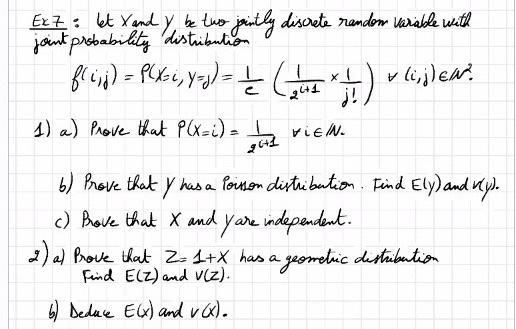 Ex 7 : let X and Y be two jointly discrete random variable with
joint probability distribution
f(i,j) = P(X=i, Y=j) = 1/e ( 1/2^{i+1} × 1/j! ) ∀ (i,j) ∈ IN².
1) a) Prove that P(X=i) = 1/2^{i+1} ∀ i ∈ IN.
b) Prove that Y has a Poisson distribution. Find E(Y) and V(Y).
c) Prove that X and Y are independent.
2) a) Prove that Z = 1+X has a geometric distribution
Find E(Z) and V(Z).
b) Deduce E(X) and V(X).